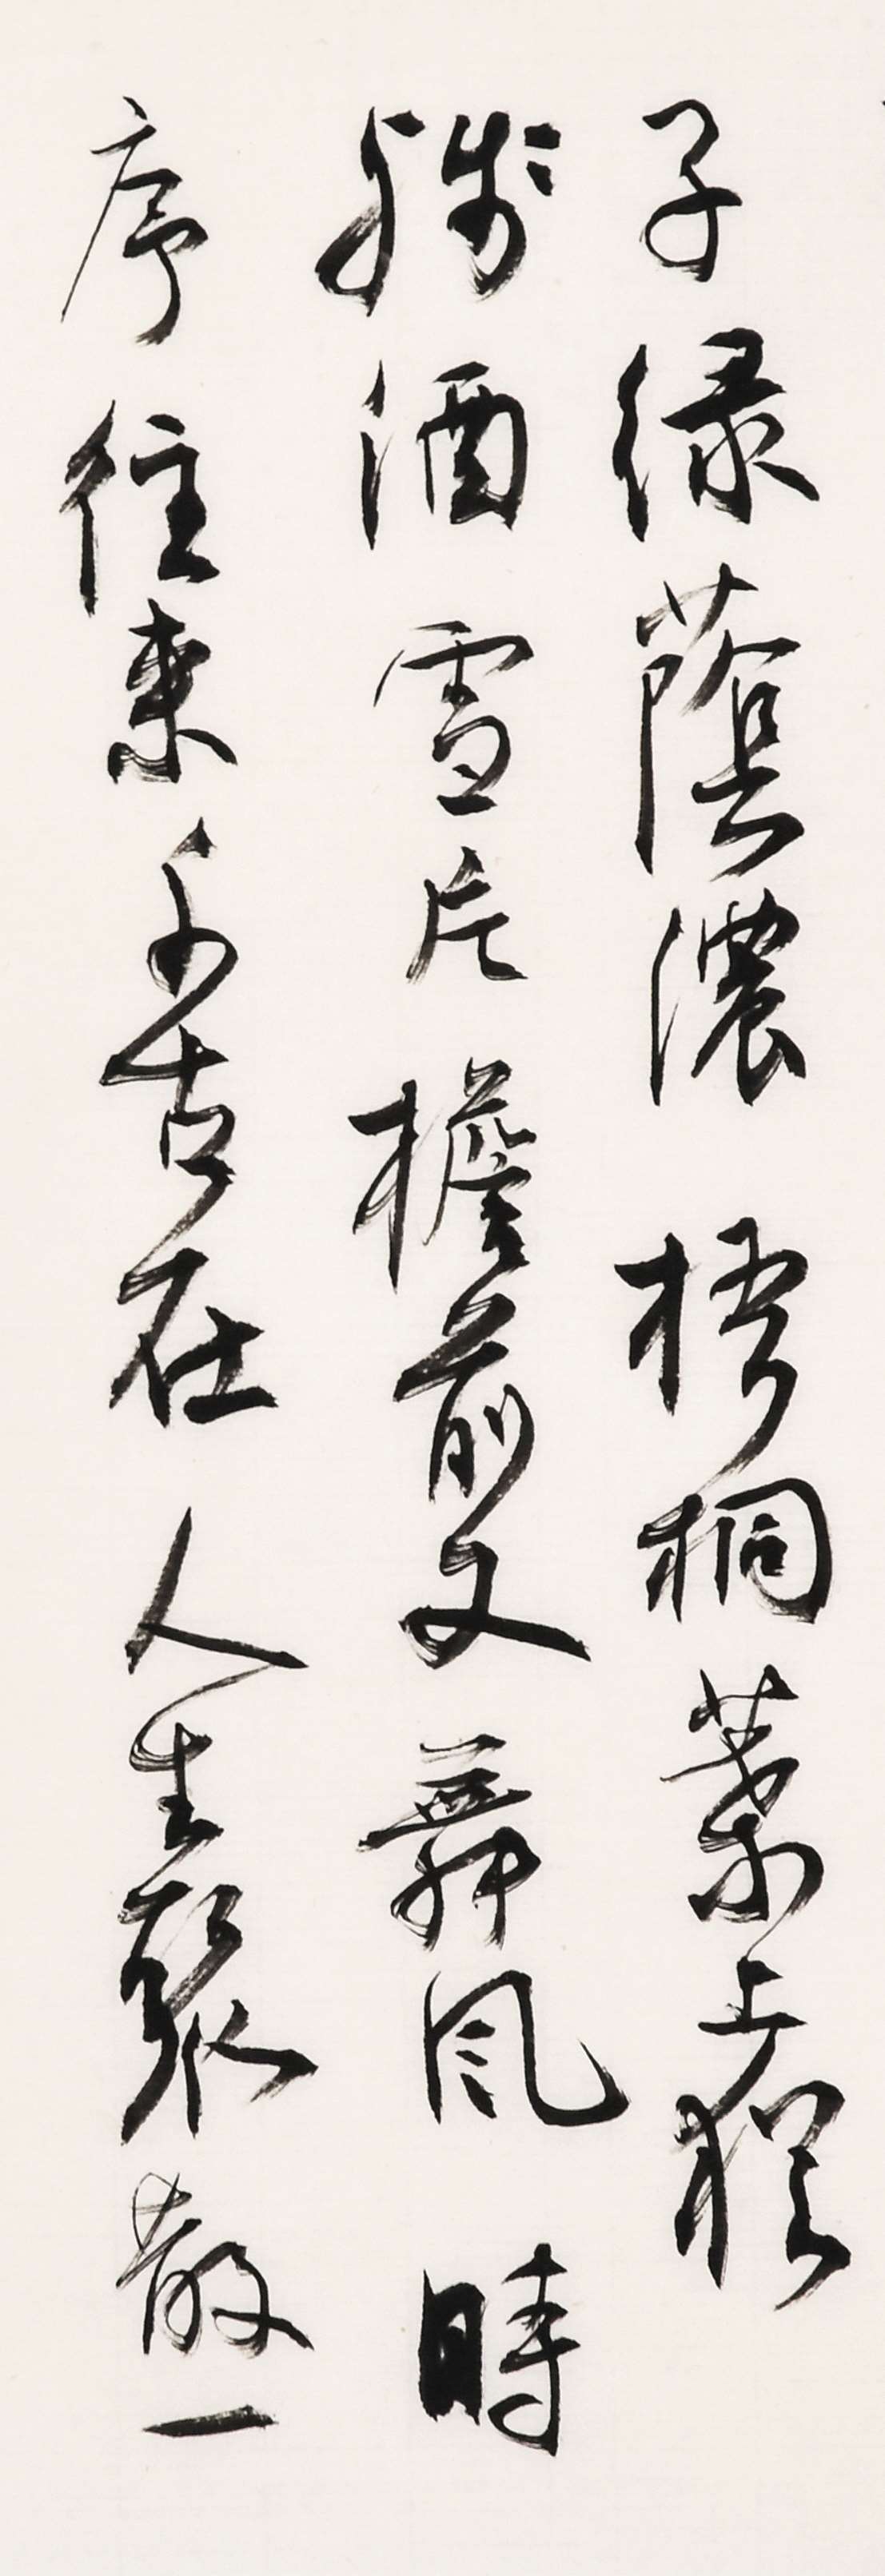 子绿蔭濃梧桐葉上猶
殘酒雪片檐前又舞風時
序往来千古在人生聚散一